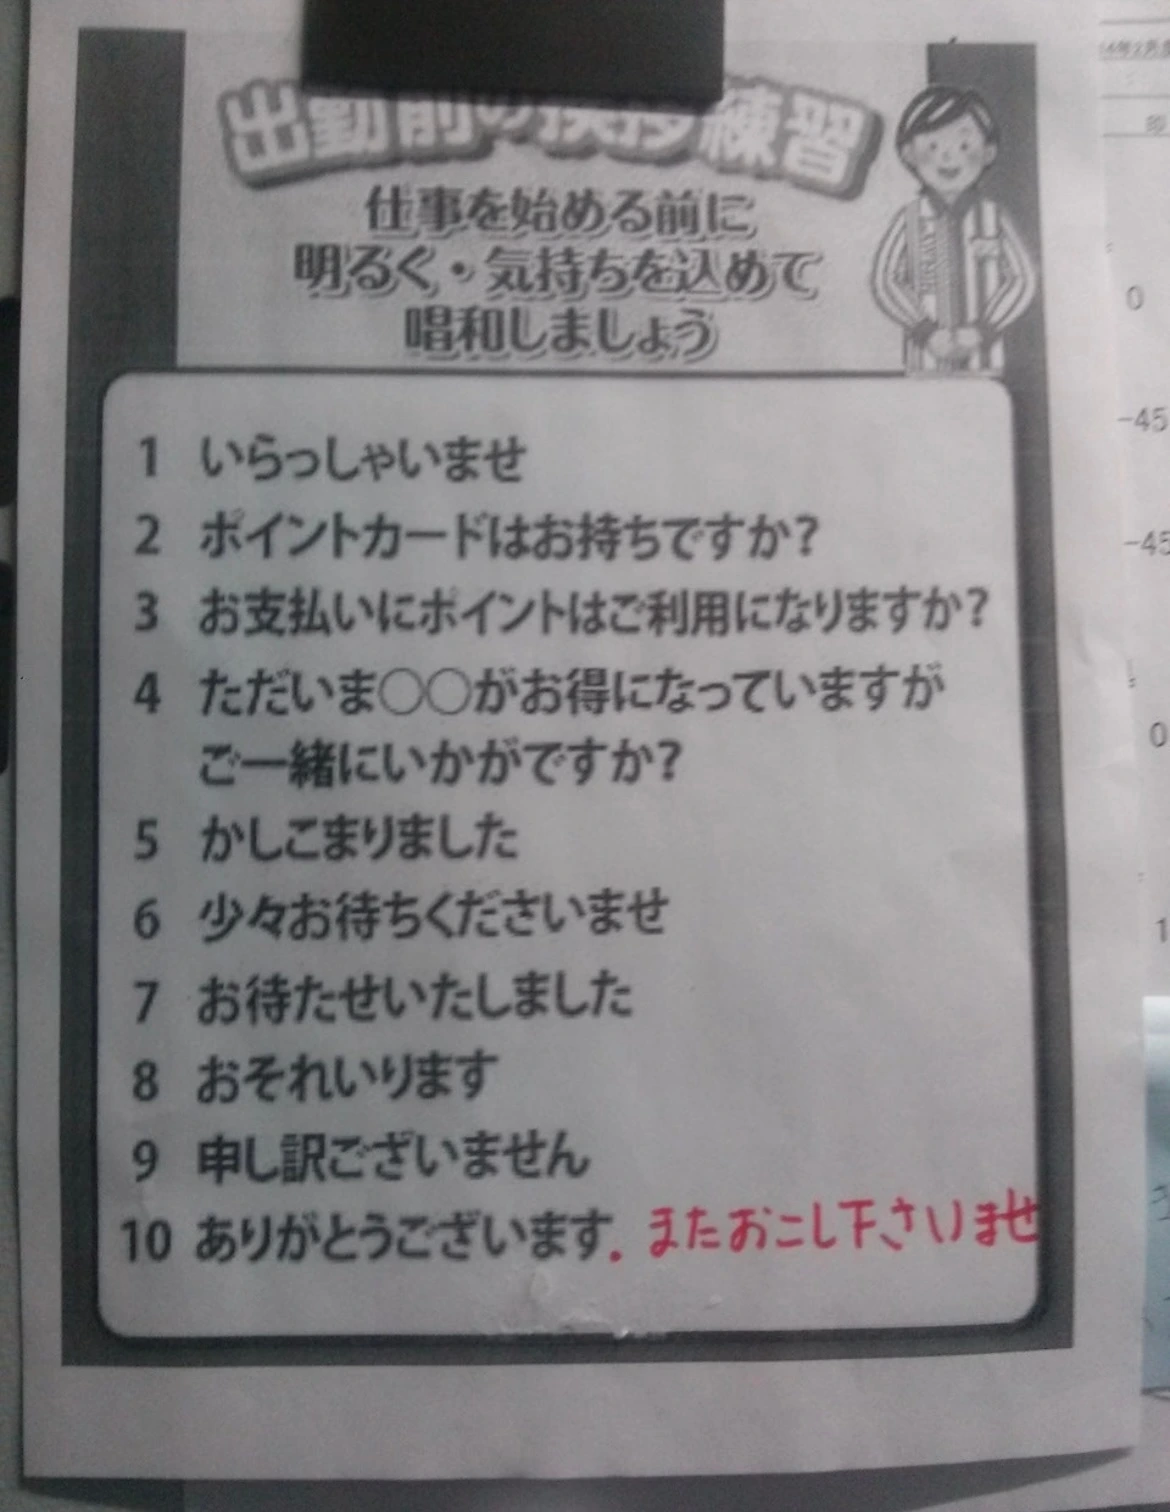 出勤前の挨拶練習
仕事を始める前に
明るく・気持ちを込めて
唱和しましょう
1 いらっしゃいませ
2 ポイントカードはお持ちですか?
3 お支払いにポイントはご利用になりますか?
4 ただいま○○がお得になっていますが
ご一緒にいかがですか?
5 かしこまりました
6 少々お待ちくださいませ
7 お待たせいたしました
8 おそれいります
9 申し訳ございません
10 ありがとうございます. またおこし下さいませ
0
-45
-45
0
1